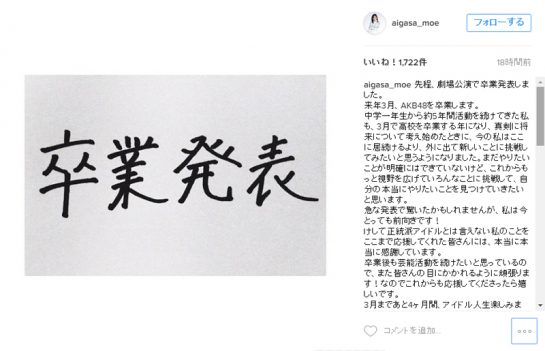 卒業発表
aigasa_moe
フォローする
いいね！1,722件
18時間前
aigasa_moe 先程、劇場公演で卒業発表しました。
来年3月、AKB48を卒業します。
中学一年生から約5年間活動を続けてきた私も、3月で高校を卒業する年になり、真剣に将来について考え始めたときに、今の私はここに居続けるより、外に出て新しいことに挑戦してみたいと思うようになりました。まだやりたいことが明確にはできていないけど、これからもっと視野を広げていろんなことに挑戦して、自分の本当にやりたいことを見つけていきたいと思います。
急な発表で驚いたかもしれませんが、私は今とっても前向きです！
けして正統派アイドルとは言えない私のことをここまで応援してくれた皆さんには、本当に本当に感謝しています。
卒業後も芸能活動を続けたいと思っているので、また皆さんの目にかかれるように頑張ります！なのでこれからも応援してくださったら嬉しいです。
3月まであと4ヶ月間、アイドル人生楽しみま
コメントを追加...